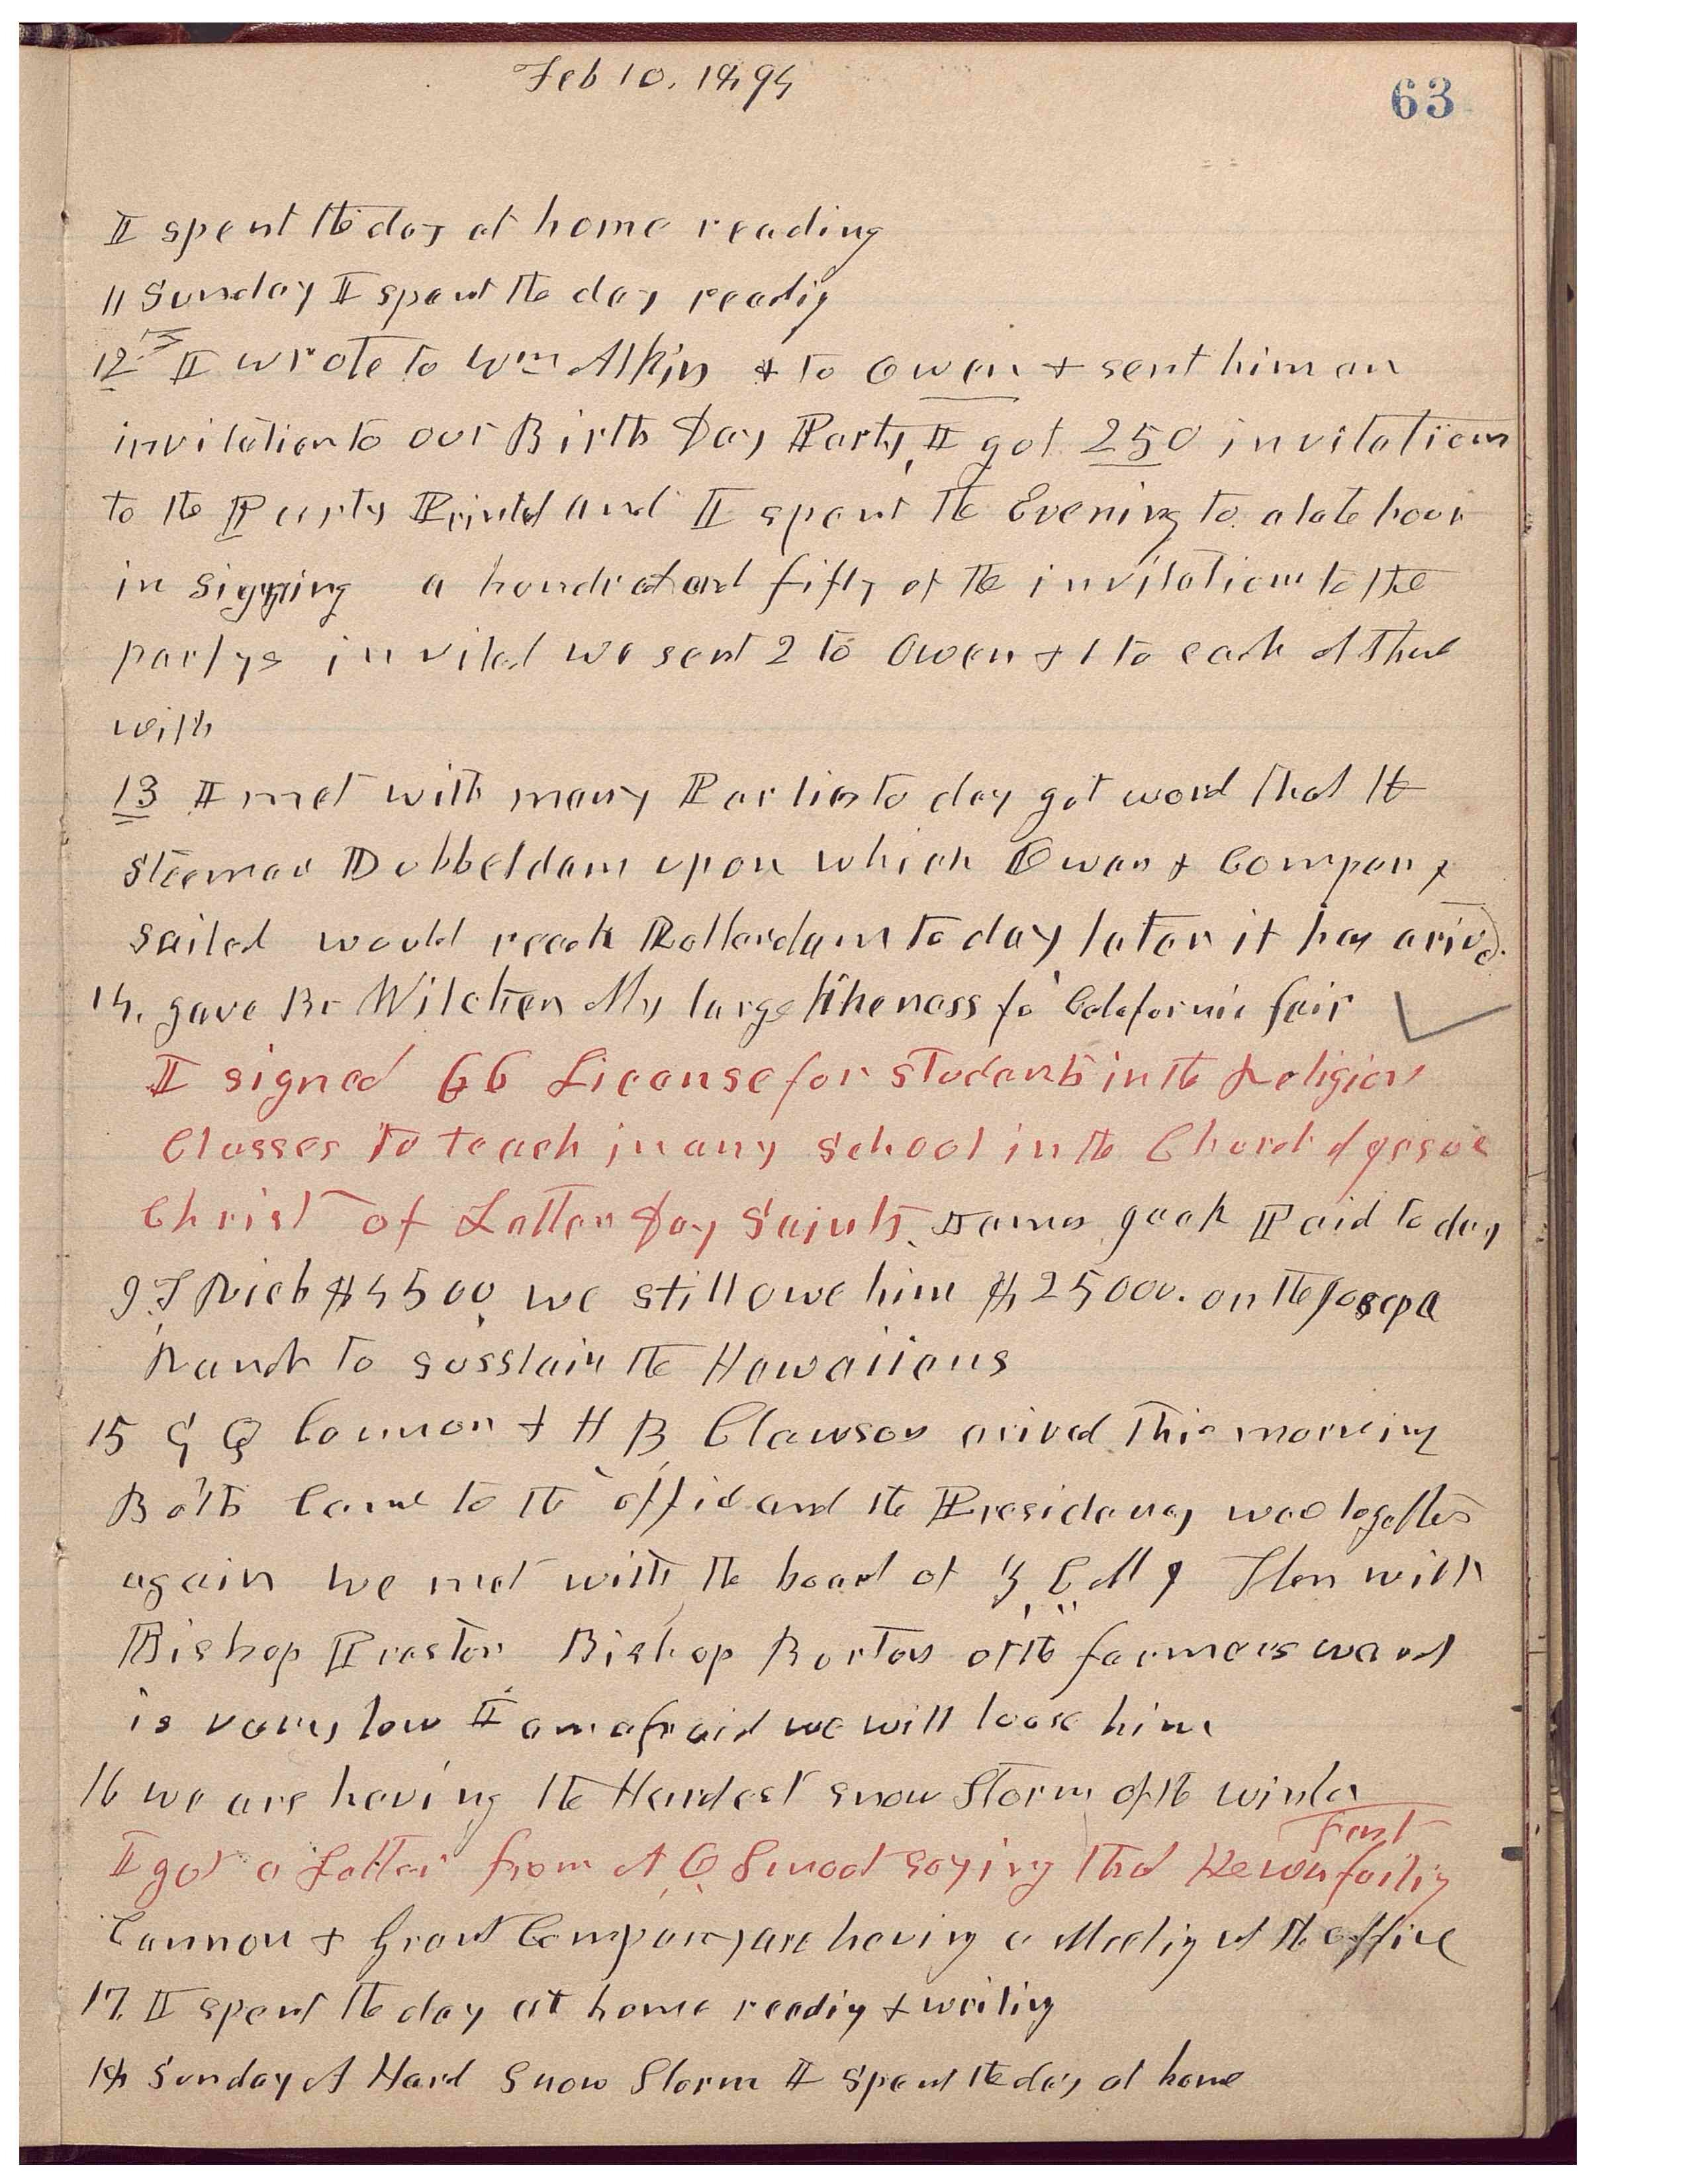 Feb 10, 1894
63
I spent the day at home reading
11 Sunday I spent the day readig
12th I wrote to Wm Atkin & to Owen & sent him an
invitation to our Birth Day Party, I got 250 invitations
to the Party Printed and I spent the Evening to a late hour
in signing a hundred and fifty of the invitations to the
partys invited we sent 2 to Owen & 1 to each of those
with
13 I met with many Parties to day got word that the
steemer Dubbeldam upon which Owen & Company
sailed would reach Rotterdam to day later it has arived.
14. gave Br Wilcken My large likeness fo Calefornia fair
I signed 66 License for students in the Religion
Classes to teach in any School in the Church of Jesus
Christ of Latter Day Saints. James Jack Paid to day
J. T. Rich $4500, we still owe him $25000. on the Josepa
Ranch to susstain the Hawaiians
15 G Q Cannon & H B Clawson arived this morning
Both Came to the office and the Presidency was together
again we met with the board of Z. C. M I then with
Bishop Preston Bishop Burton of the farmers ward
is very low I am afraid we will loose him
16 we are having the Hardest snow Storm of the winter
Fast
I got a Letter from A, O, Smoot saying that He was failig
Cannon & Grant Company are having a Meetig at the office
17. I spent the day at home readig & writing
18 Sunday A Hard Snow Storm I spent the day at home